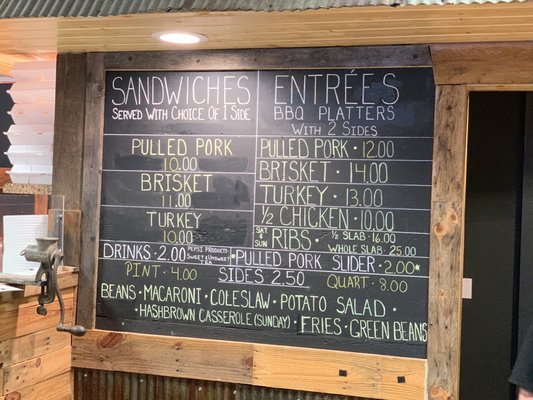 SANDWICHES
SERVED WITH CHOICE OF 1 SIDE
PULLED PORK
10.00
BRISKET
11.00
TURKEY
10.00
ENTRÉES
BBQ PLATTERS
WITH 2 SIDES
PULLED PORK · 12.00
BRISKET · 14.00
TURKEY · 13.00
½ CHICKEN · 10.00
SAT & SUN RIBS · ½ SLAB · 16.00
WHOLE SLAB · 25.00
DRINKS · 2.00 PEPSI PRODUCTS · SWEET & UNSWEET
*PULLED PORK SLIDER · 2.00*
PINT · 4.00 SIDES 2.50 QUART · 8.00
BEANS · MACARONI · COLESLAW · POTATO SALAD ·
· HASHBROWN CASSEROLE (SUNDAY) · FRIES · GREEN BEANS